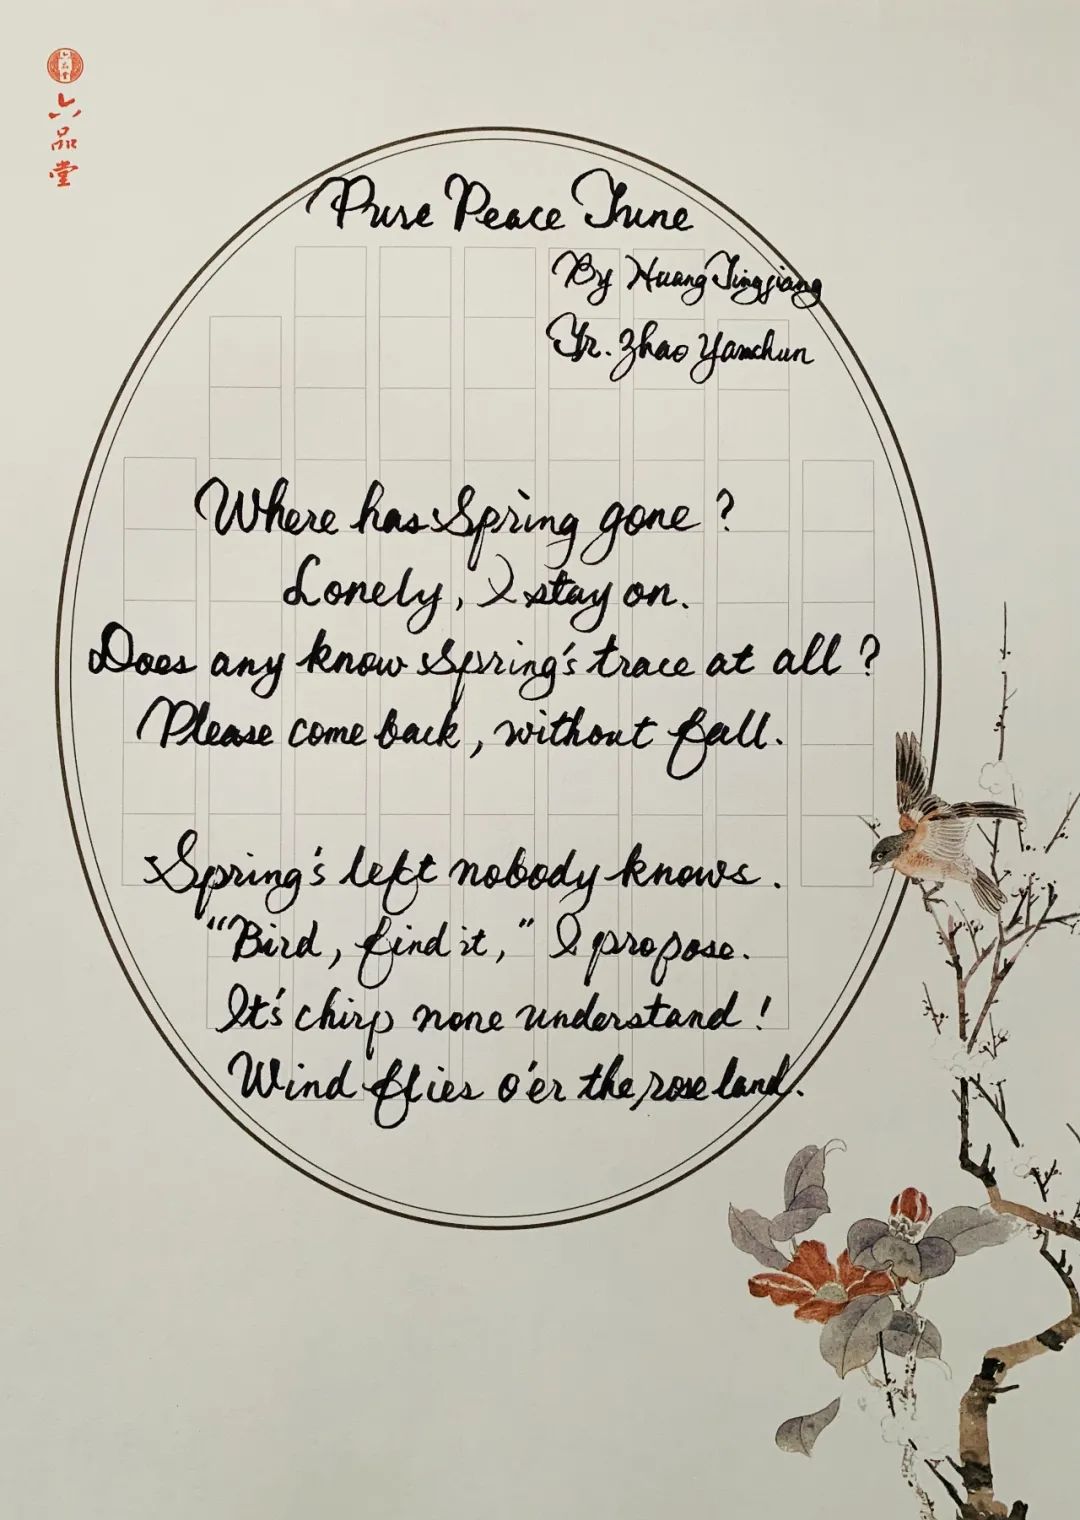 六品堂
六品堂
Pure Peace Tune
By Huang Tingjiang
Tr. Zhao Yanchun
Where has Spring gone?
Lonely, I stay on.
Does any know Spring's trace at all?
Please come back, without fall.
Spring's left nobody knows.
"Bird, find it," I propose.
It's chirp none understand!
Wind flies o'er the rose land.